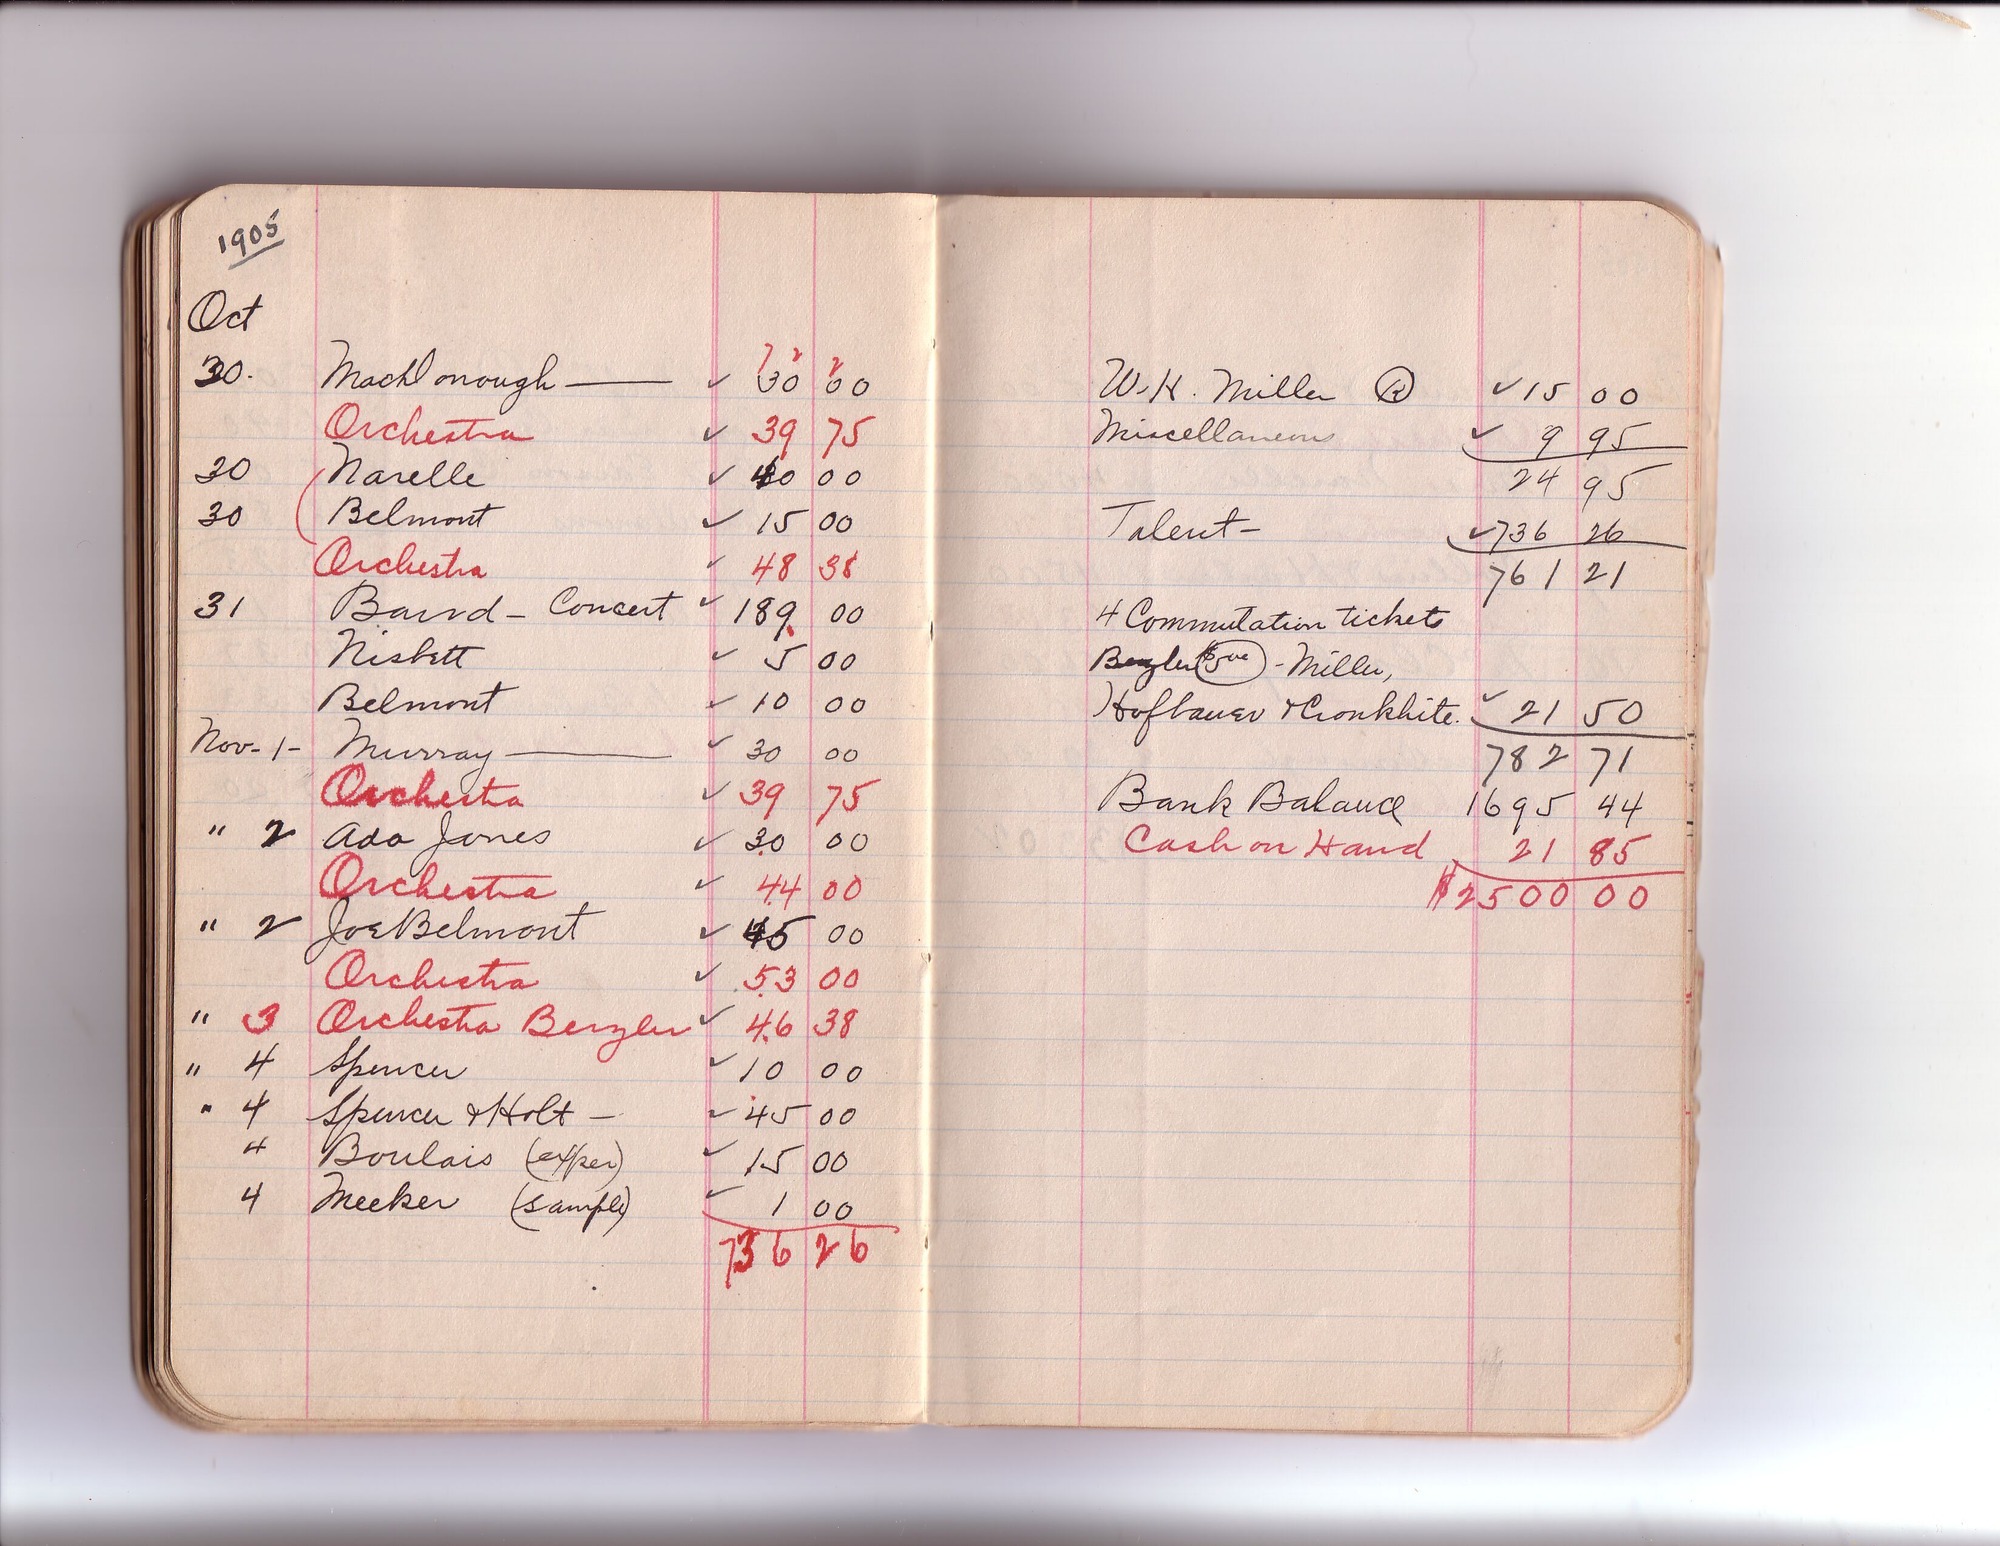 1905
Oct
7 2 2
30. MacDonough — ✓ 30 00
Orchestra ✓ 39 75
30 Narelle ✓ 40 00
30 Belmont ✓ 15 00
Orchestra ✓ 48 38
31 Band - Concert ✓ 189 00
Nisbett ✓ 5 00
Belmont ✓ 10 00
Nov-1- Murray — ✓ 30 00
Orchestra ✓ 39 75
" 2 Ada Jones ✓ 30 00
Orchestra ✓ 44 00
" 2 Joe Belmont ✓ 45 00
Orchestra ✓ 53 00
" 3 Orchestra Benzler ✓ 46 38
" 4 Spencer ✓ 10 00
" 4 Spencer & Holt - ✓ 45 00
4 Boulais (exper) ✓ 15 00
4 Meeker (sample) ✓ 1 00
736 26
W.H. Miller (R) ✓ 15 00
Miscellaneous ✓ 9 95
24 95
Talent - ✓ 736 26
761 21
4 Commutation tickets
Benzler ($5 00) - Miller,
Hofbauer & Cronkhite. ✓ 21 50
782 71
Bank Balance 1695 44
Cash on Hand 21 85
$2500 00